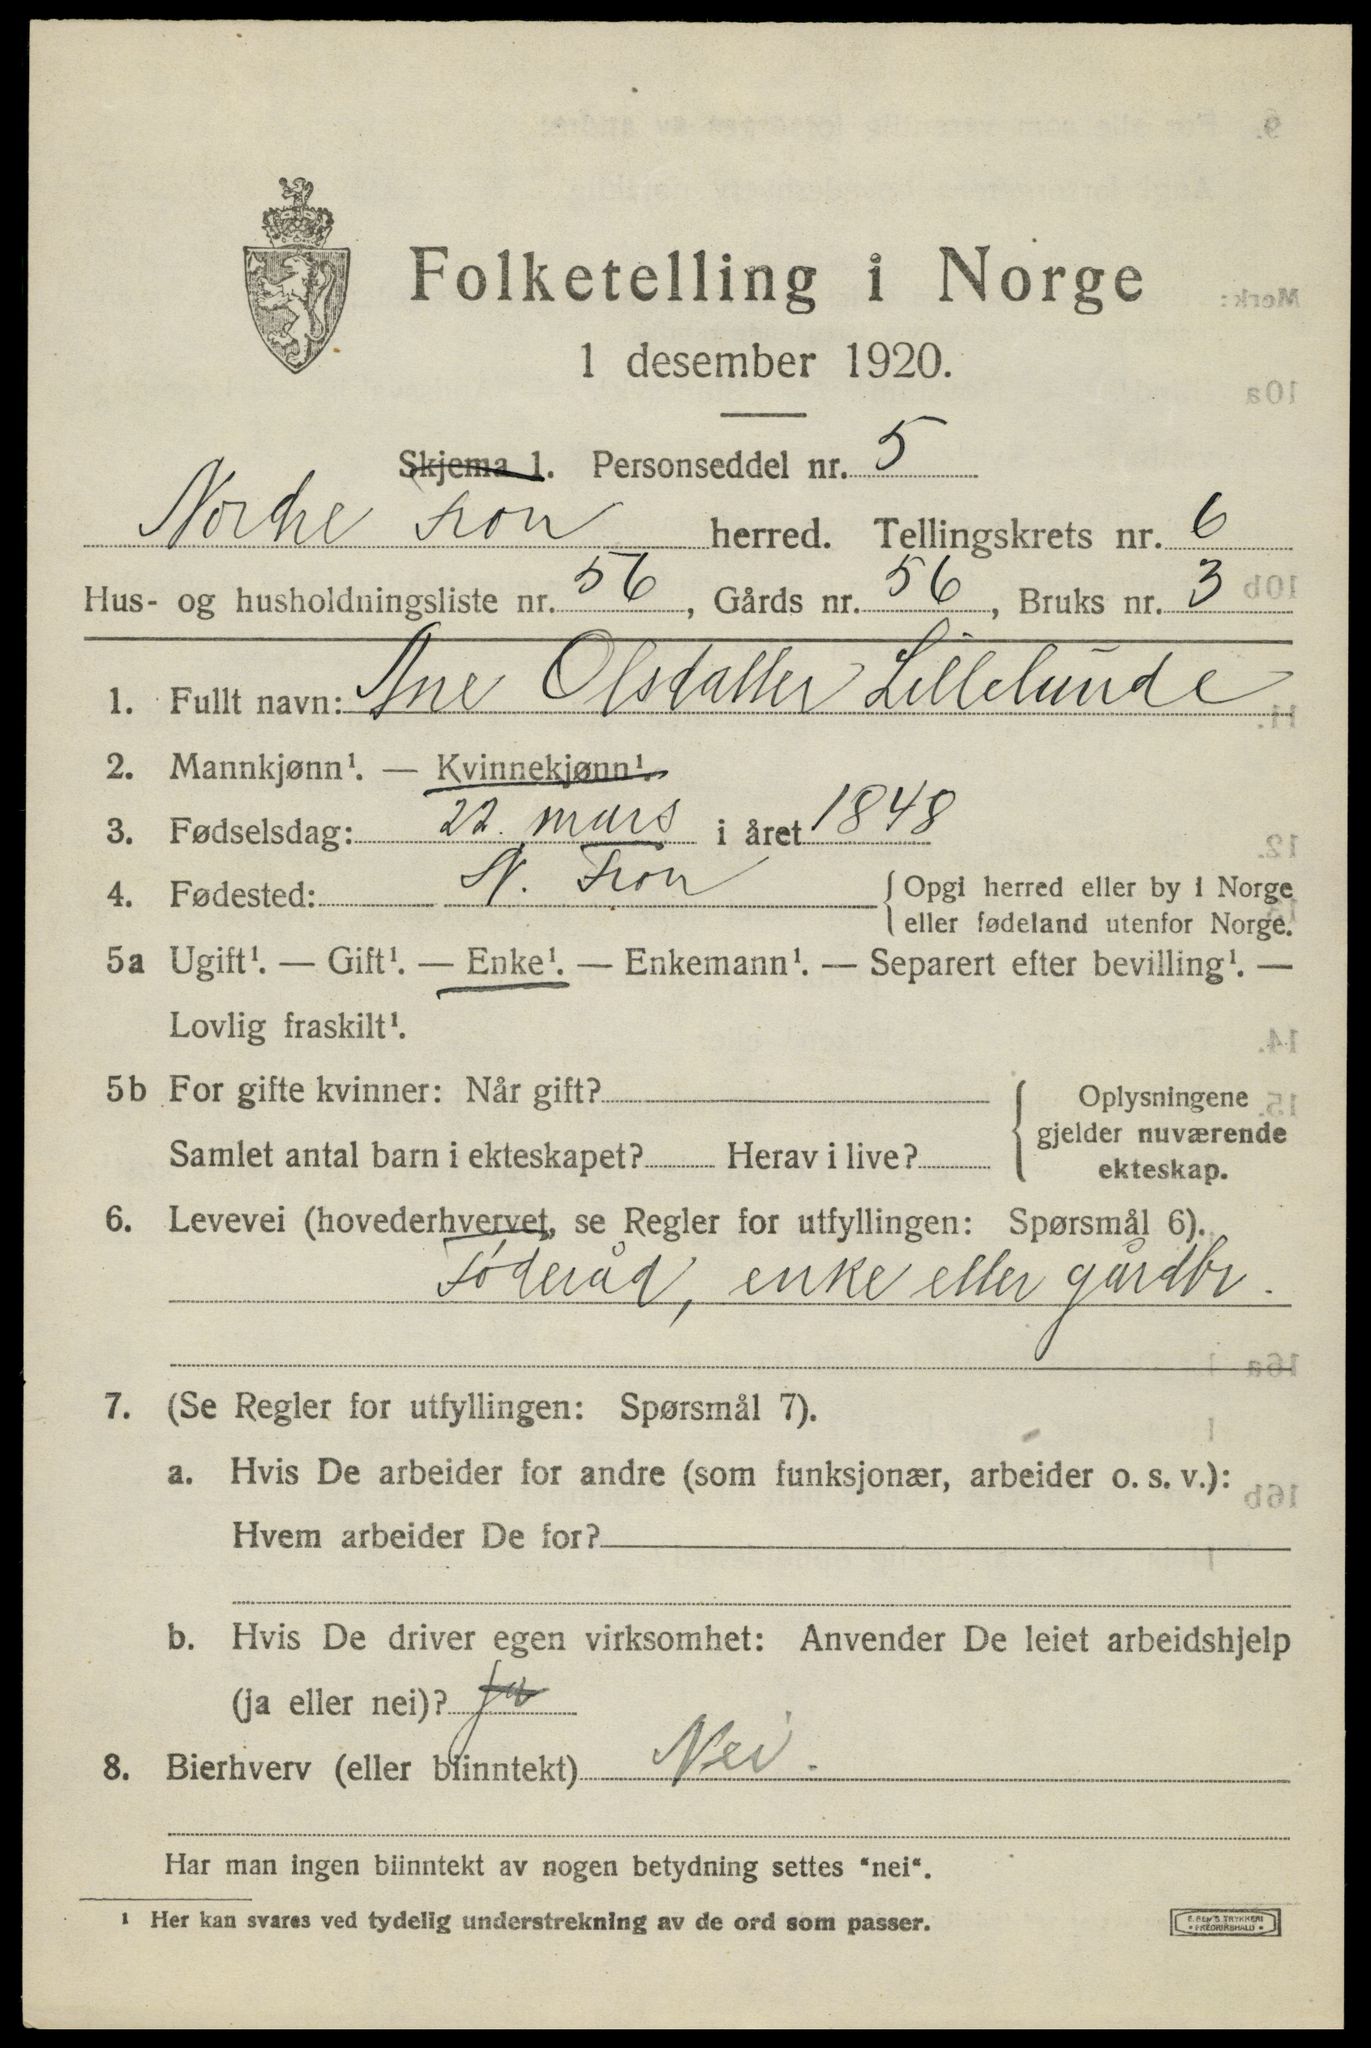 Folketelling i Norge
1 desember 1920.
Skjema 1. Personseddel nr. 5
Nordre Fron herred. Tellingskrets nr. 6
Hus- og husholdningsliste nr. 56, Gårds nr. 56, Bruks nr. 3
1. Fullt navn: Ane Olsdatter Lillelunde
2. Mannkjønn¹. — Kvinnekjønn¹.
3. Fødselsdag: 22. mars i året 1848
4. Fødested: N. Fron { Opgi herred eller by i Norge
eller fødeland utenfor Norge.
5a Ugift¹. — Gift¹. — Enke¹. — Enkemann¹. — Separert efter bevilling¹. —
Lovlig fraskilt¹.
5b For gifte kvinner: Når gift?
Samlet antal barn i ekteskapet? Herav i live?
Oplysningene
gjelder nuværende
ekteskap.
6. Levevei (hovederhvervet, se Regler for utfyllingen: Spørsmål 6).
Føderåd, enke eller gårdbr.
7. (Se Regler for utfyllingen: Spørsmål 7).
a. Hvis De arbeider for andre (som funksjonær, arbeider o. s. v.):
Hvem arbeider De for?
b. Hvis De driver egen virksomhet: Anvender De leiet arbeidshjelp
(ja eller nei)? ja
8. Bierhverv (eller biinntekt) Nei.
Har man ingen biinntekt av nogen betydning settes "nei".
¹ Her kan svares ved tydelig understrekning av de ord som passer.
TRYKKERI
FREDRIKSHALD